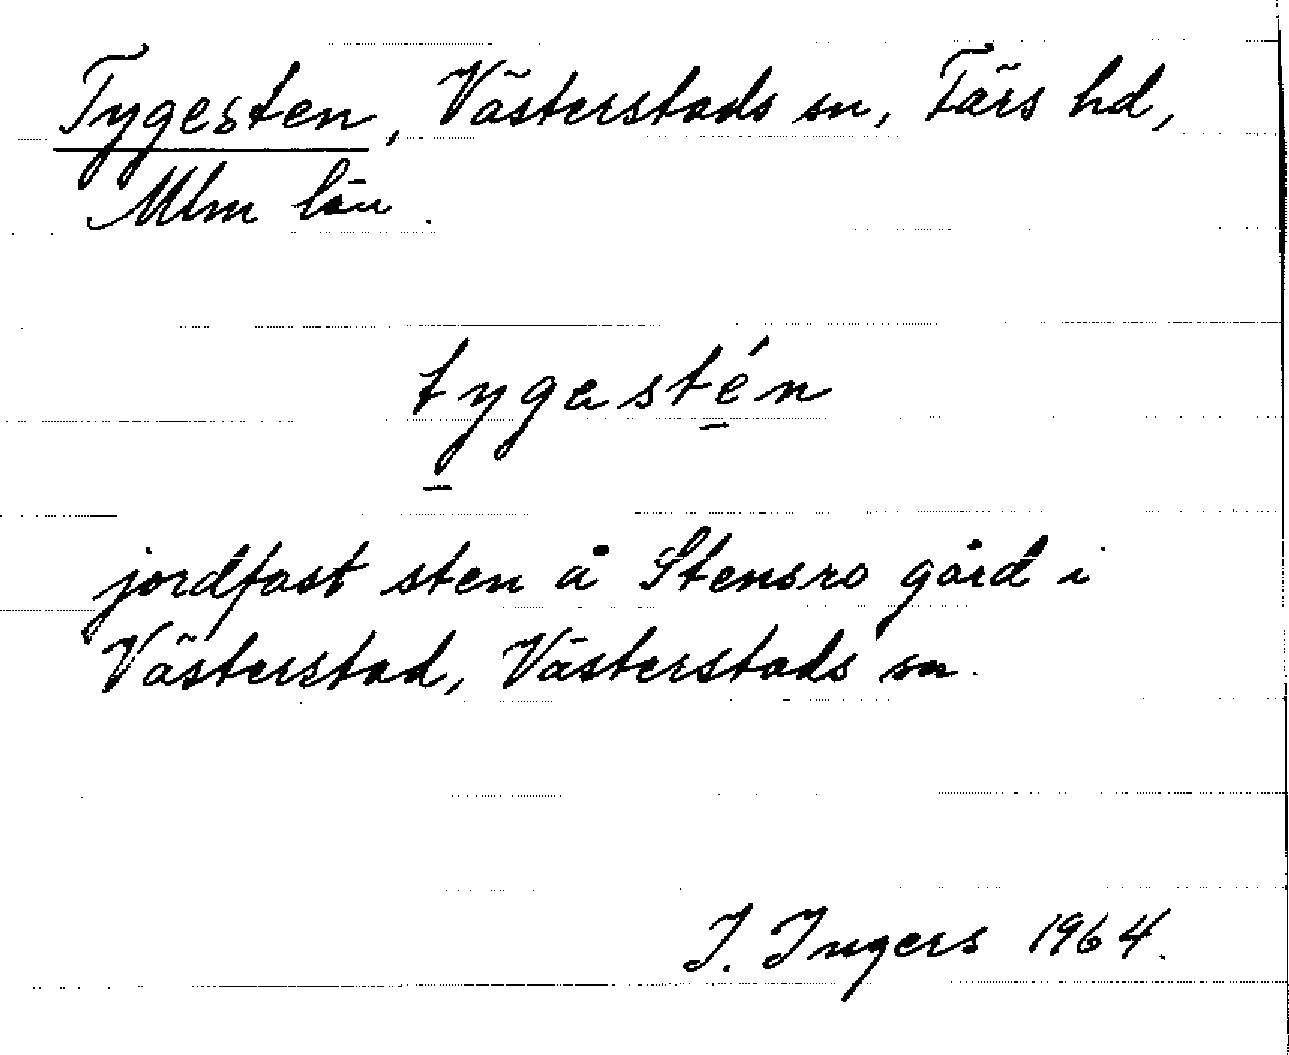 Tygesten, Västerstads sn, Färs hd,
Mlm län.
tygestén
jordfast sten å Stensro gård i
Västerstad, Västerstads sn.
I. Ingers 1964.